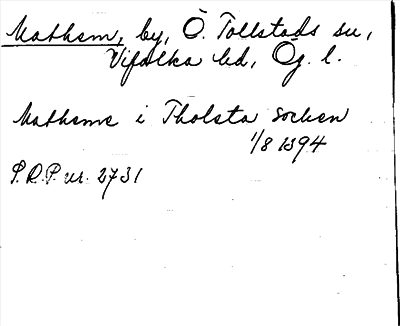 Mathem, by, Ö. Tollstads sn,
Vifolka hd, Ög. l.
Matheme i Tholsta socken
1/8 1394
S.R.P. nr. 2731